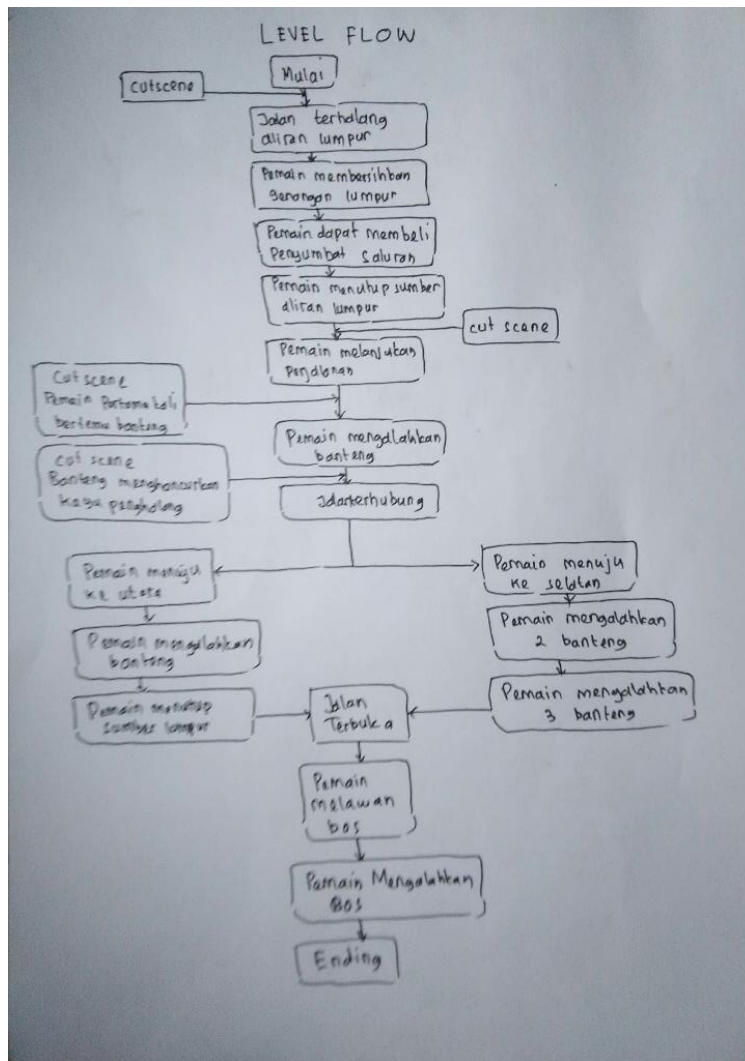 LEVEL FLOW
Mulai
cutscene
Jalan terhalang
aliran lumpur
Pemain membersihkan
genangan lumpur
Pemain dapat membeli
Penyumbat saluran
Pemain menutup sumber
aliran lumpur
cut scene
Pemain melanjutkan
Perjalanan
Cut scene
Pemain Pertama kali
bertemu banteng
Pemain mengalahkan
banteng
cut scene
Banteng menghancurkan
kayu penghalang
Jalan terhubung
Pemain menuju
ke utara
Pemain menuju
ke selatan
Pemain mengalahkan
banteng
Pemain mengalahkan
2 banteng
Pemain menutup
sumber lumpur
Jalan
Terbuka
Pemain mengalahkan
3 banteng
Pemain
melawan
bos
Pemain Mengalahkan
Bos
Ending